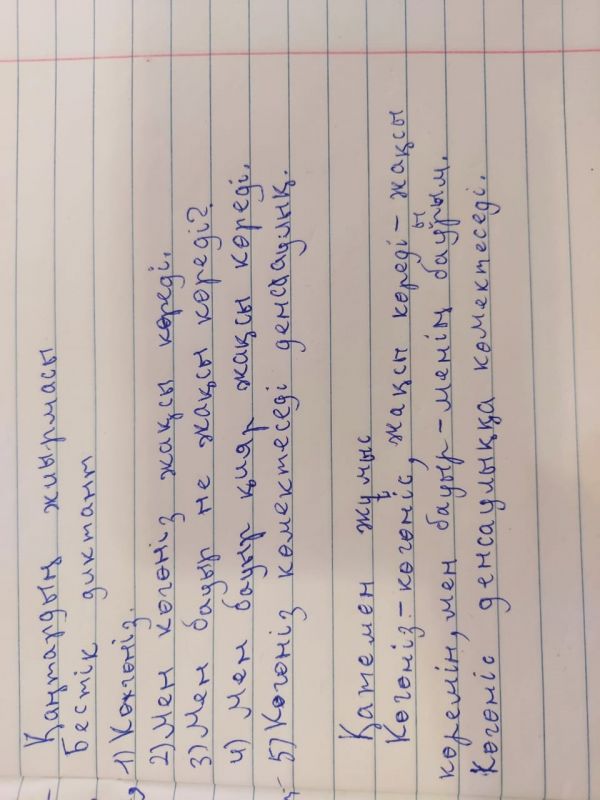 Қаңтардың жиырмасы
Бестік диктант
1) Көкөніз.
2) Мен көгөніз жақсы көреді.
3) Мен бауыр не жақсы көреді?
4) Мен бауыр қияр жақсы көреді.
5) Көгөніз көмектеседі денсаулық.
Қатемен жұмыс
Көгөніз - көгөніс, жақсы көреді - жақсы
көремін, мен бауыр - менің бауырым.
Көгөніс денсаулыққа көмектеседі.